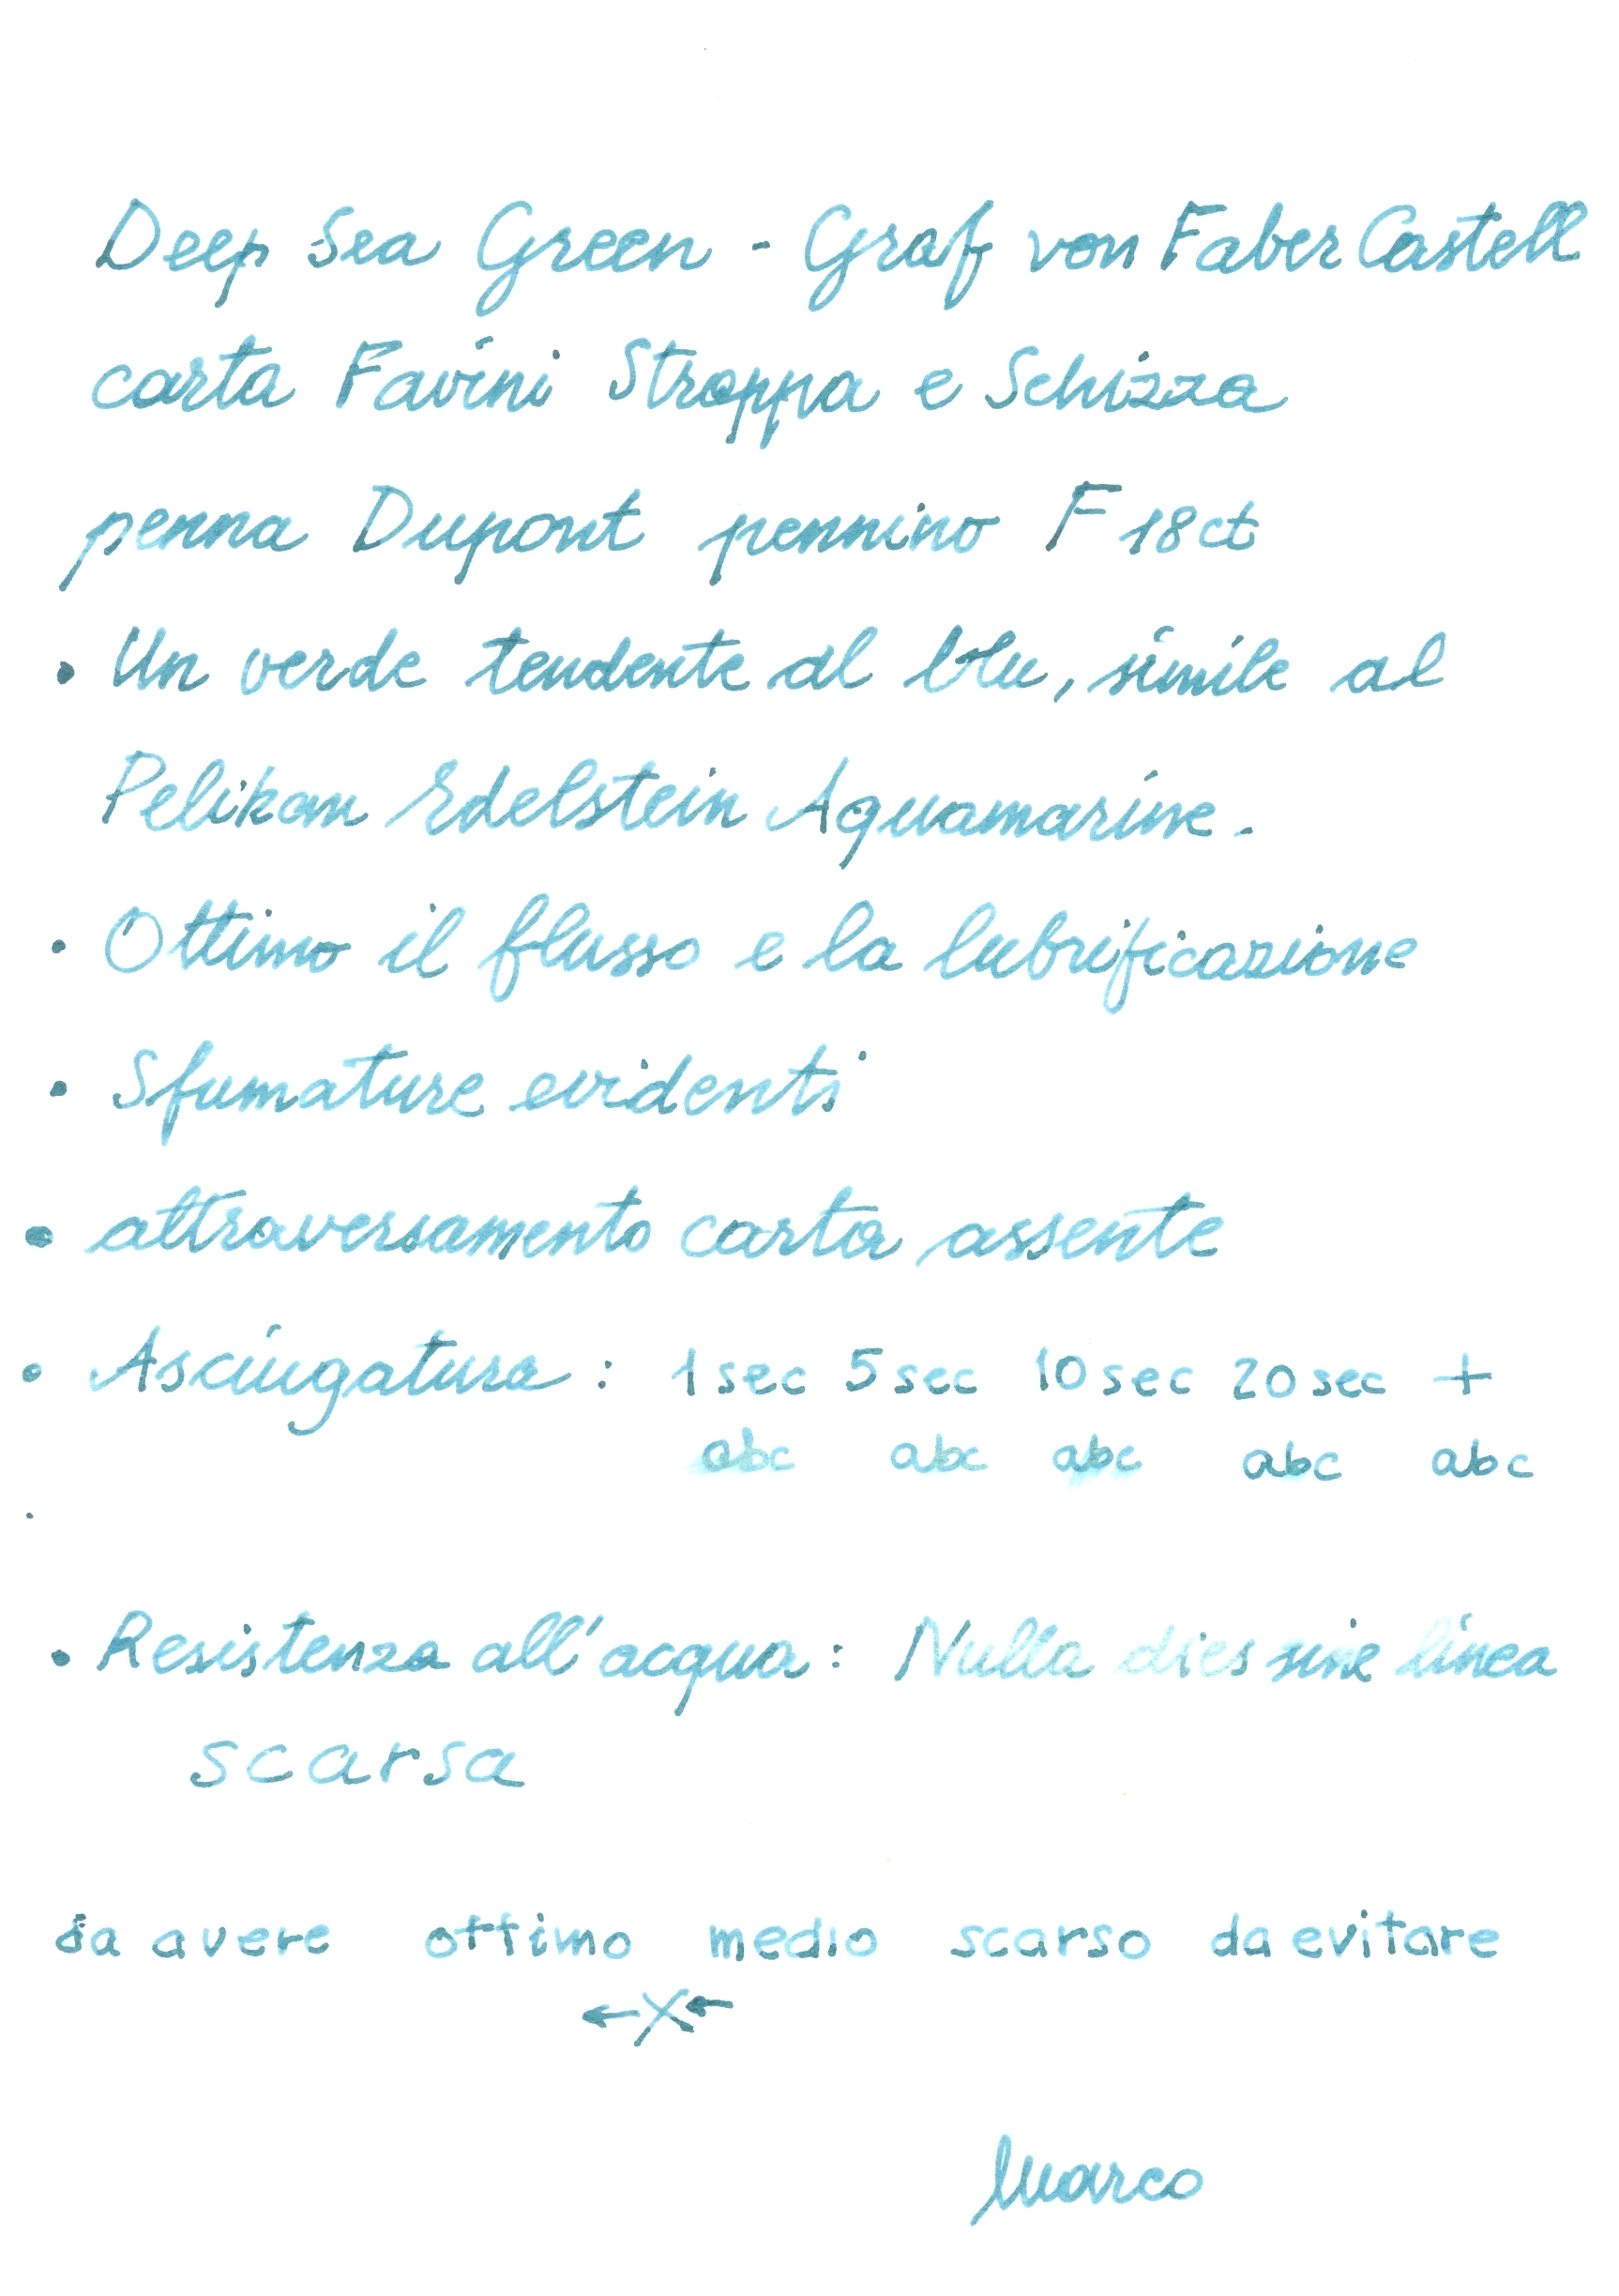 Deep Sea Green - Graf von Faber Castell
carta Favini Stroppa e Schizza
penna Dupont pennino F 18ct
• Un verde tendente al blu, simile al
Pelikan Edelstein Aquamarine.
• Ottimo il flusso e la lubrificazione
• Sfumature evidenti
• attraversamento carta assente
• Asciugatura: 1 sec 5 sec 10 sec 20 sec +
abc abc abc abc abc
• Resistenza all'acqua: Nulla dies sine linea
scarsa
da avere ottimo medio scarso da evitare
←X←
Marco